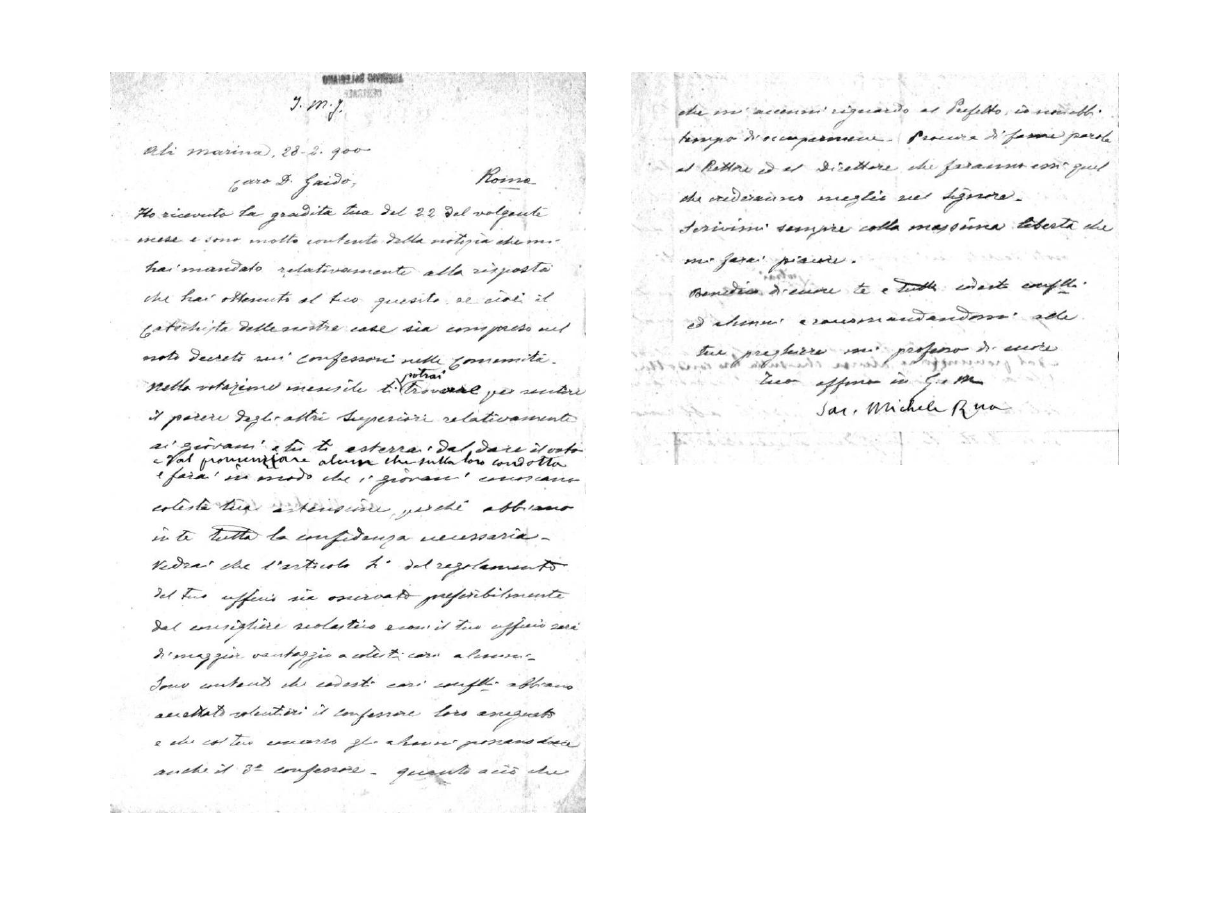 J. M. J.
Ali Marina, 28-2-900
Caro D. Gaido, Roma
Ho ricevuto la gradita tua del 22 del volgente
mese e sono molto contento della notizia che mi
hai mandato relativamente alla risposta
che hai ottenuto al tuo quesito, se cioè il
Catechista delle nostre case sia compreso nel
noto decreto sui confessori nelle Comunità.
Nella votazione mensile ti potrai trovare per sentire
il parere degli altri Superiori relativamente
ai giovani e tu ti asterrai dal dare il voto
e dal pronunziare alcun che sulla loro condotta
e farai in modo che i giovani conoscano
cotesta tua astensione, perché abbiano
in te tutta la confidenza necessaria.
Vedrai che l'articolo del regolamento
del tuo ufficio sia osservato preferibilmente
dal consigliere scolastico e così il tuo ufficio sarà
di maggior vantaggio a cotesti cari alunni.
Sono contento che codesti cari conflli abbiano
accettato volentieri il confessore loro assegnato
e che col tuo concorso gli alunni possano avere
anche il 3º confessore. Quanto a ciò che
che mi accenni riguardo al Prefetto, io non ebbi
tempo di occuparmene. Procura di farne parola
al Rettore ed al Direttore che faranno essi quel
che vedranno meglio nel Signore.
Scrivimi sempre colla massima libertà che
mi farai piacere.
Benedico di cuore te e tutti codesti conflli
ed alunni e raccomandandomi alle
tue preghiere mi professo di cuore
tuo affmo in G. e M.
Sac. Michele Rua